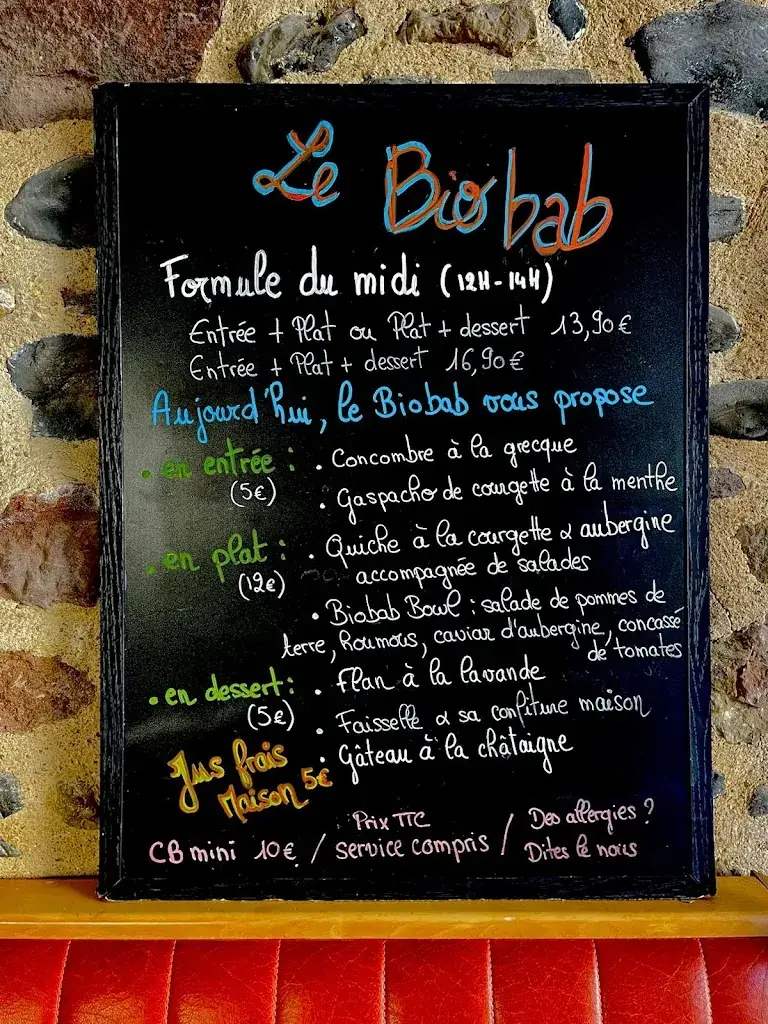 Le Biobab
Formule du midi (12H-14H)
Entrée + Plat ou Plat + dessert 13,90€
Entrée + Plat + dessert 16,90€
Aujourd'hui, le Biobab vous propose
• en entrée : • Concombre à la grecque
(5€) • Gaspacho de courgette à la menthe
• en plat : • Quiche à la courgette & aubergine
(12€) accompagnée de salades
• Biobab Bowl : salade de pommes de
terre, houmous, caviar d'aubergine, concassé
de tomates
• en dessert : • Flan à la lavande
(5€) • Faisselle & sa confiture maison
• Gâteau à la châtaigne
Jus frais
Maison 5€
CB mini 10€ / Prix TTC
service compris / Des allergies ?
Dites le nous